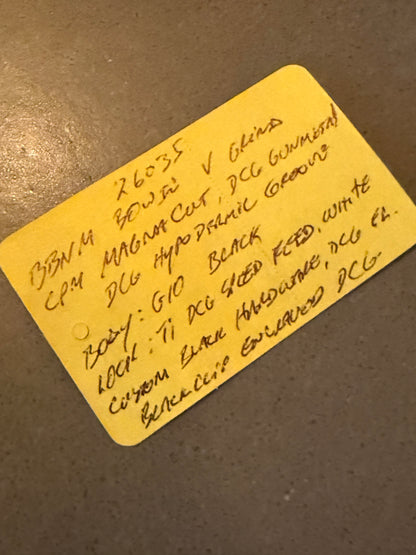 26035
BBNM BOWIE V GRIND
CPM MAGNACUT, DCG GUNMETAL
DCG HYPODERMIC GROOVE
BODY: G10 BLACK
LOCK: Ti DCG SPEED REED, WHITE
CUSTOM BLACK HARDWARE, DCG
BLACK CLIP ENGRAVED DCG